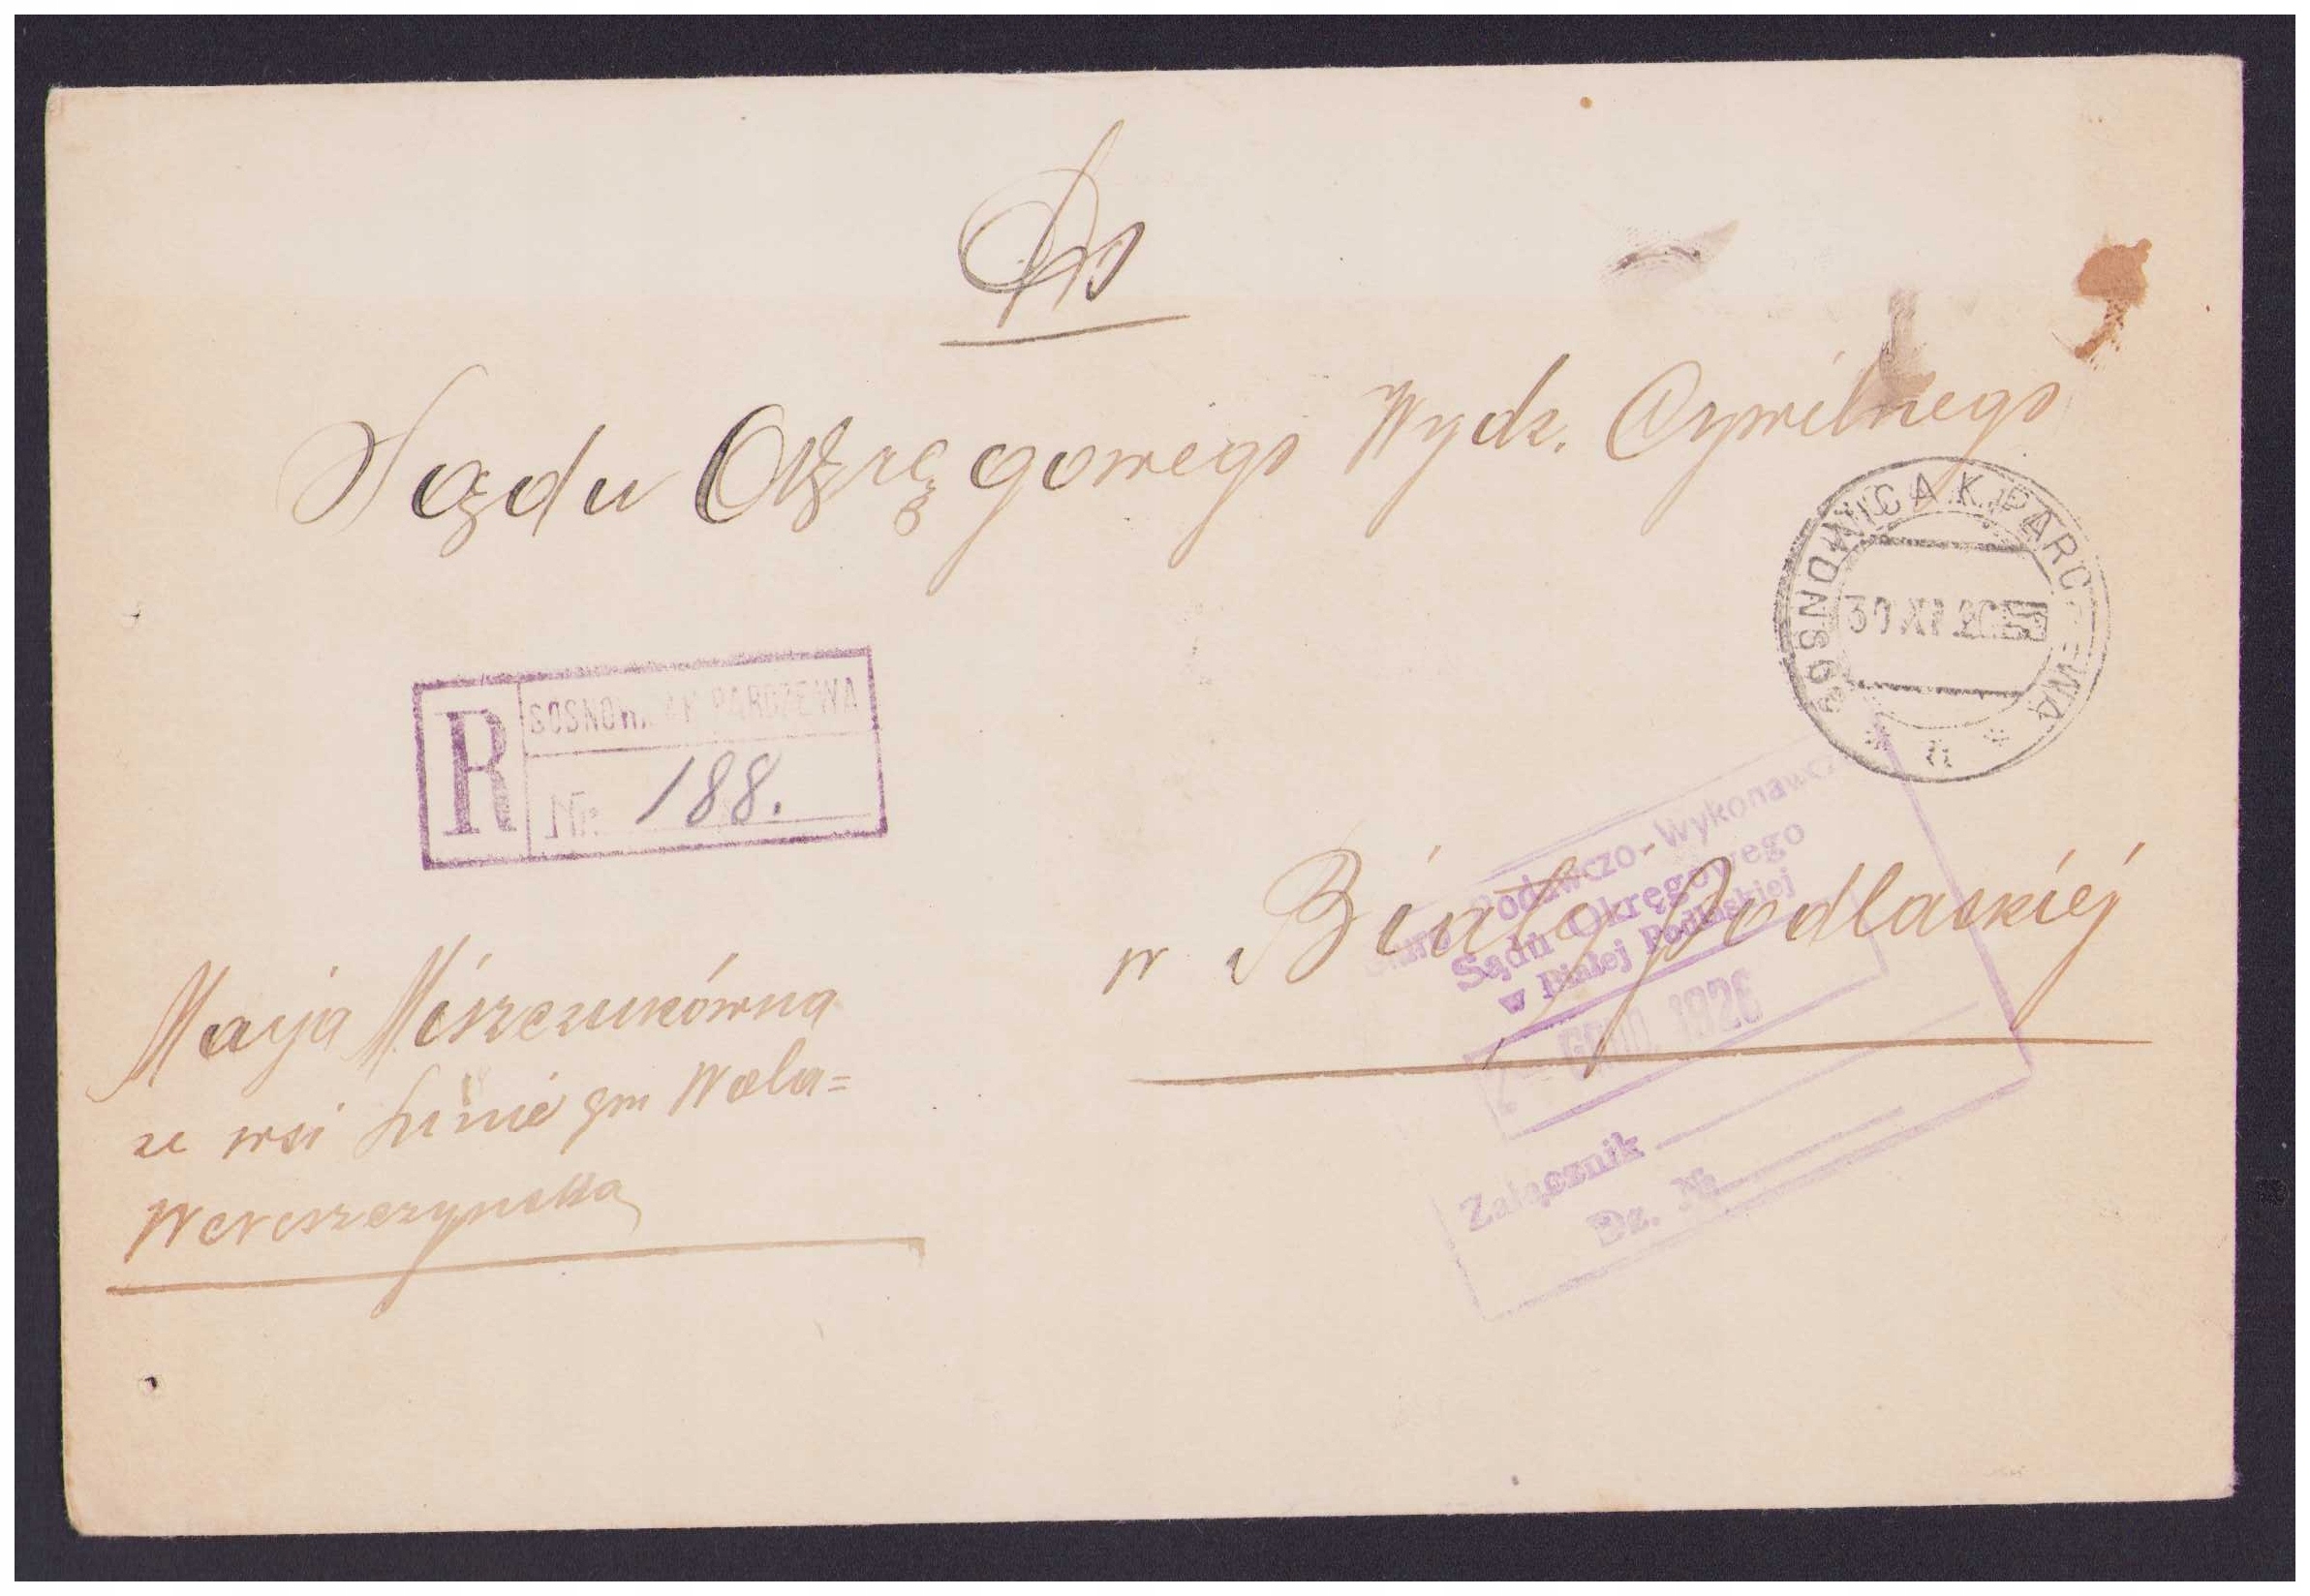 Do
Sądu Okręgowego Wydz. Cywilnego
SOSNOWICA K. PARC EWA
30 XI 26
* *
R
SOSNOW PARCZEWA
Nr. 188.
w Białej Podlaskiéj
Podawczo-Wykonawcz
Sądu Okręgowego
w Białej Podlaskiej
GRUD. 1926
Załącznik
Dz. №
Marja Miszczukówna
ze wsi gm Wola=
Wereszczyńska